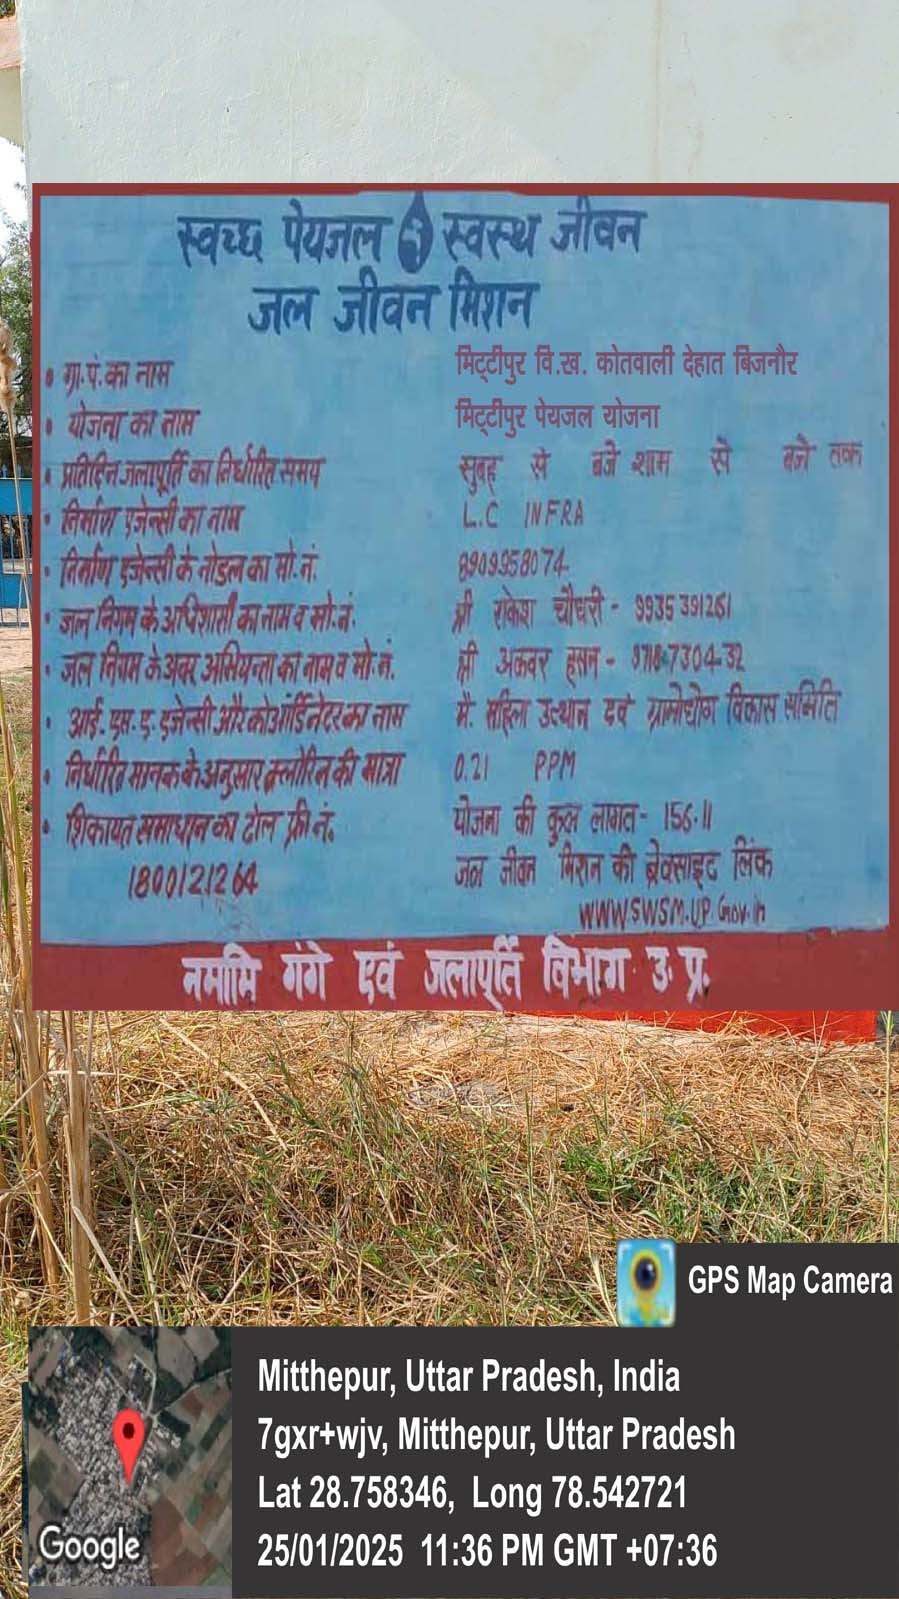 स्वच्छ पेयजल स्वस्थ जीवन
जल जीवन मिशन
• ग्रा.पं.का नाम मिट्टीपुर वि.ख. कोतवाली देहात बिजनौर
• योजना का नाम मिट्टीपुर पेयजल योजना
• प्रतिदिन जलापूर्ति का निर्धारित समय सुबह से बजे शाम से बजे तक
• निर्माण एजेन्सी का नाम L.C INFRA
• निर्माण एजेन्सी के नोडल का मो.नं. 8909958074
• जल निगम के अधिशासी का नाम व मो.नं. श्री राकेश चौधरी - 9935391261
• जल निगम के अवर अभियन्ता का नाम व मो.नं. श्री अकबर हसन -
• आई.एस.ए.एजेन्सी और कोऑर्डिनेटर का नाम मै. महिला उत्थान एवं ग्रामोद्योग विकास समिति
• निर्धारित मानक के अनुसार क्लोरिन की मात्रा 0.21 PPM
• शिकायत समाधान का टोल फ्री नं. योजना की कुल लागत - 156.11
1800121264 जल जीवन मिशन की बेवसाइट लिंक
WWW.SWSM.UP.Gov.in
नमामि गंगे एवं जलापूर्ति विभाग उ.प्र.
GPS Map Camera
Mitthepur, Uttar Pradesh, India
7gxr+wjv, Mitthepur, Uttar Pradesh
Lat 28.758346, Long 78.542721
25/01/2025 11:36 PM GMT +07:36
Google